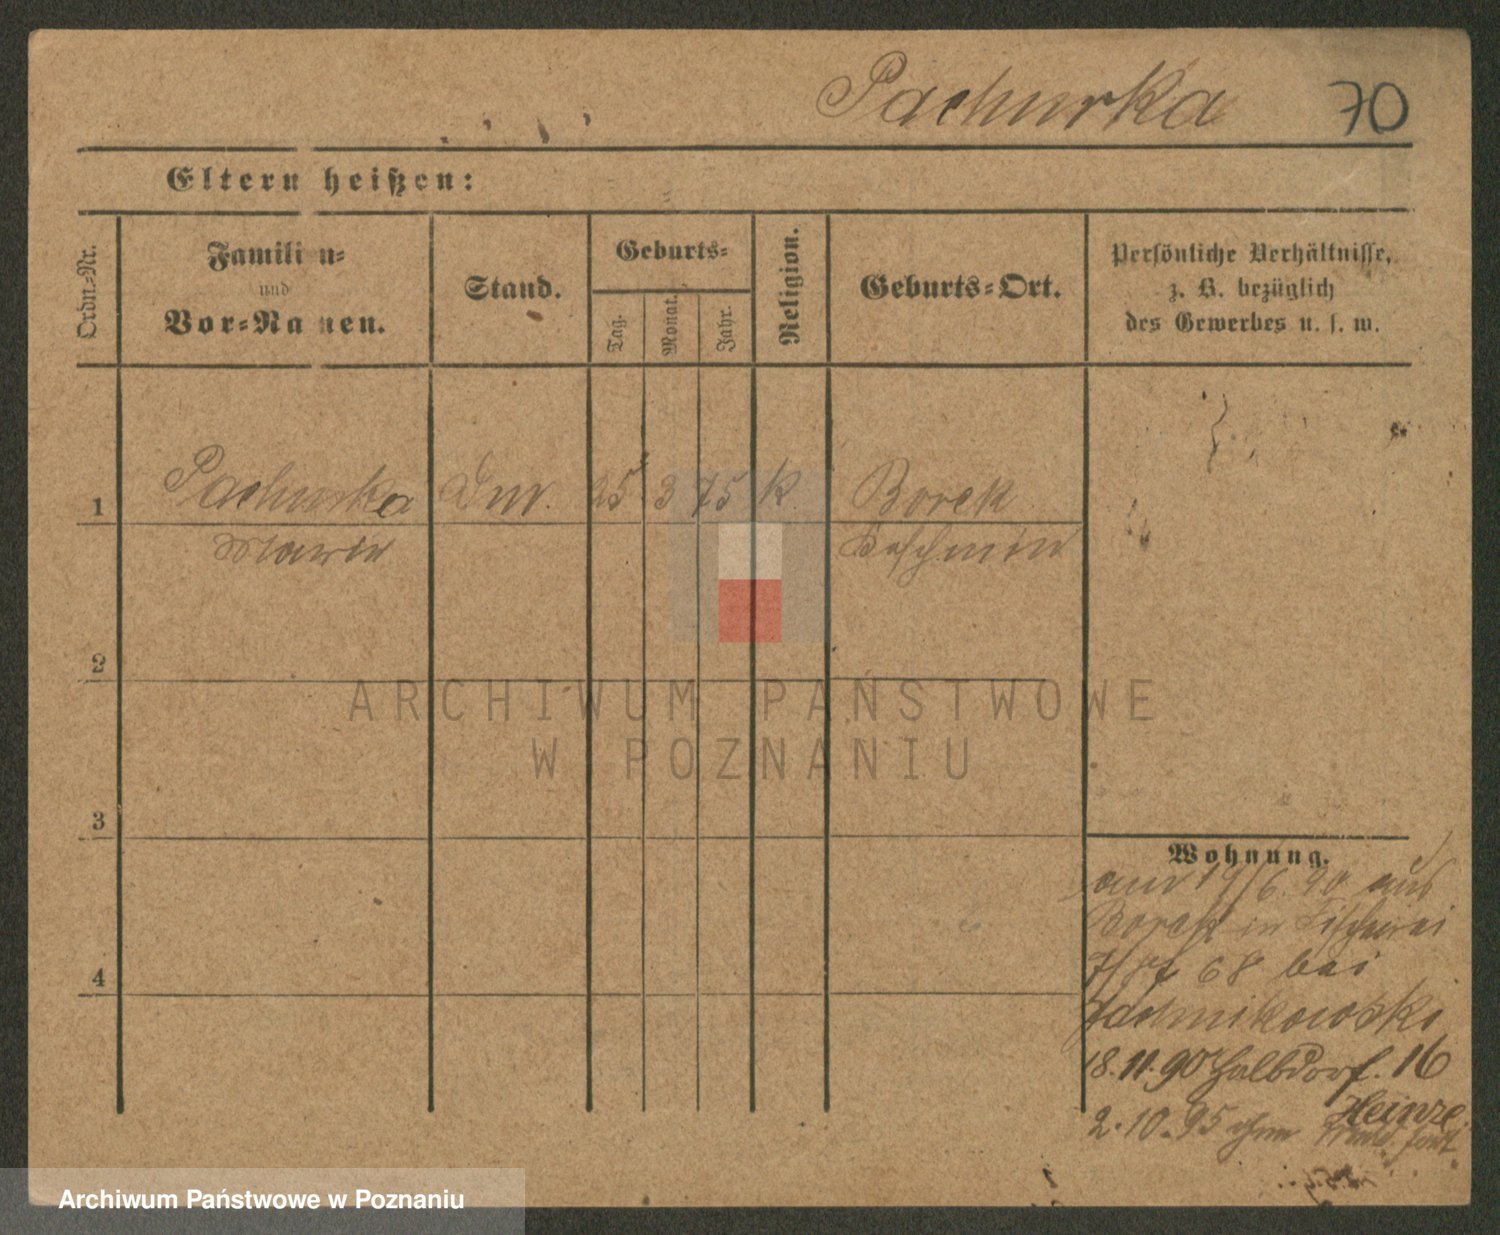 Pachurka 70
Eltern heißen:
Ordn.-Nr.
Familien-
und
Vor-Namen.
Stand.
Geburts-
Tag.
Monat.
Jahr.
Religion.
Geburts-Ort.
Persönliche Verhältnisse,
z. B. bezüglich
des Gewerbes u. s. w.
1 Pachurka 25 3 75 K Borek
Marie
2
ARCHIWUM PAŃSTWOWE
W POZNANIU
3
Wohnung.
19/6.90 aus
Borek in Fischerei
68 bei
18.11.90 Halbdorf. 16
Heinze
2.10.95 ohne
4
Archiwum Państwowe w Poznaniu